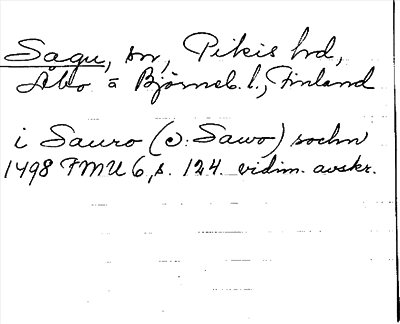 Sagu, sn, Pikis hrd,
Åbo o Björneb. l., Finland
i Sauro (ɔ: Sawo) sochn
1498 FMU 6, s. 124. vidim. avskr.